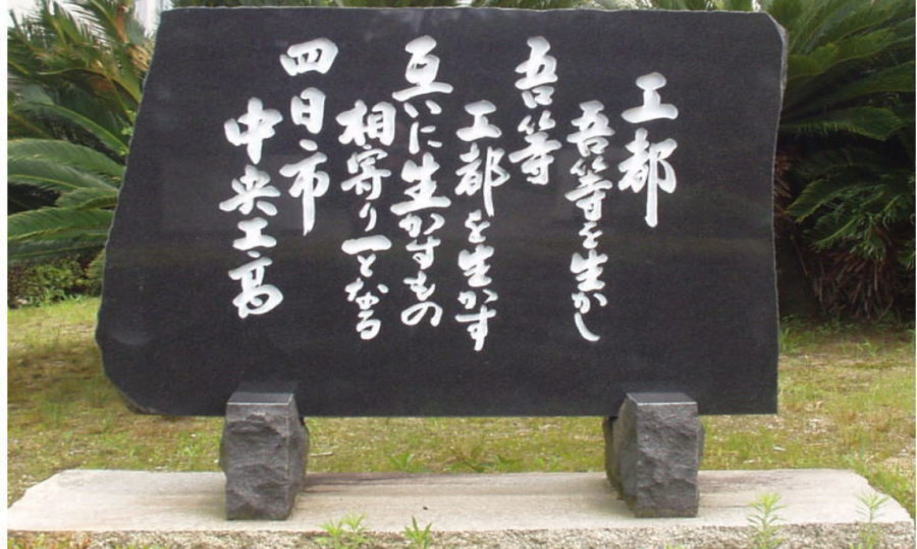 工都
吾等を生かし
吾等
工都を生かす
互いに生かすもの
相寄り一となる
四日市
中央工高